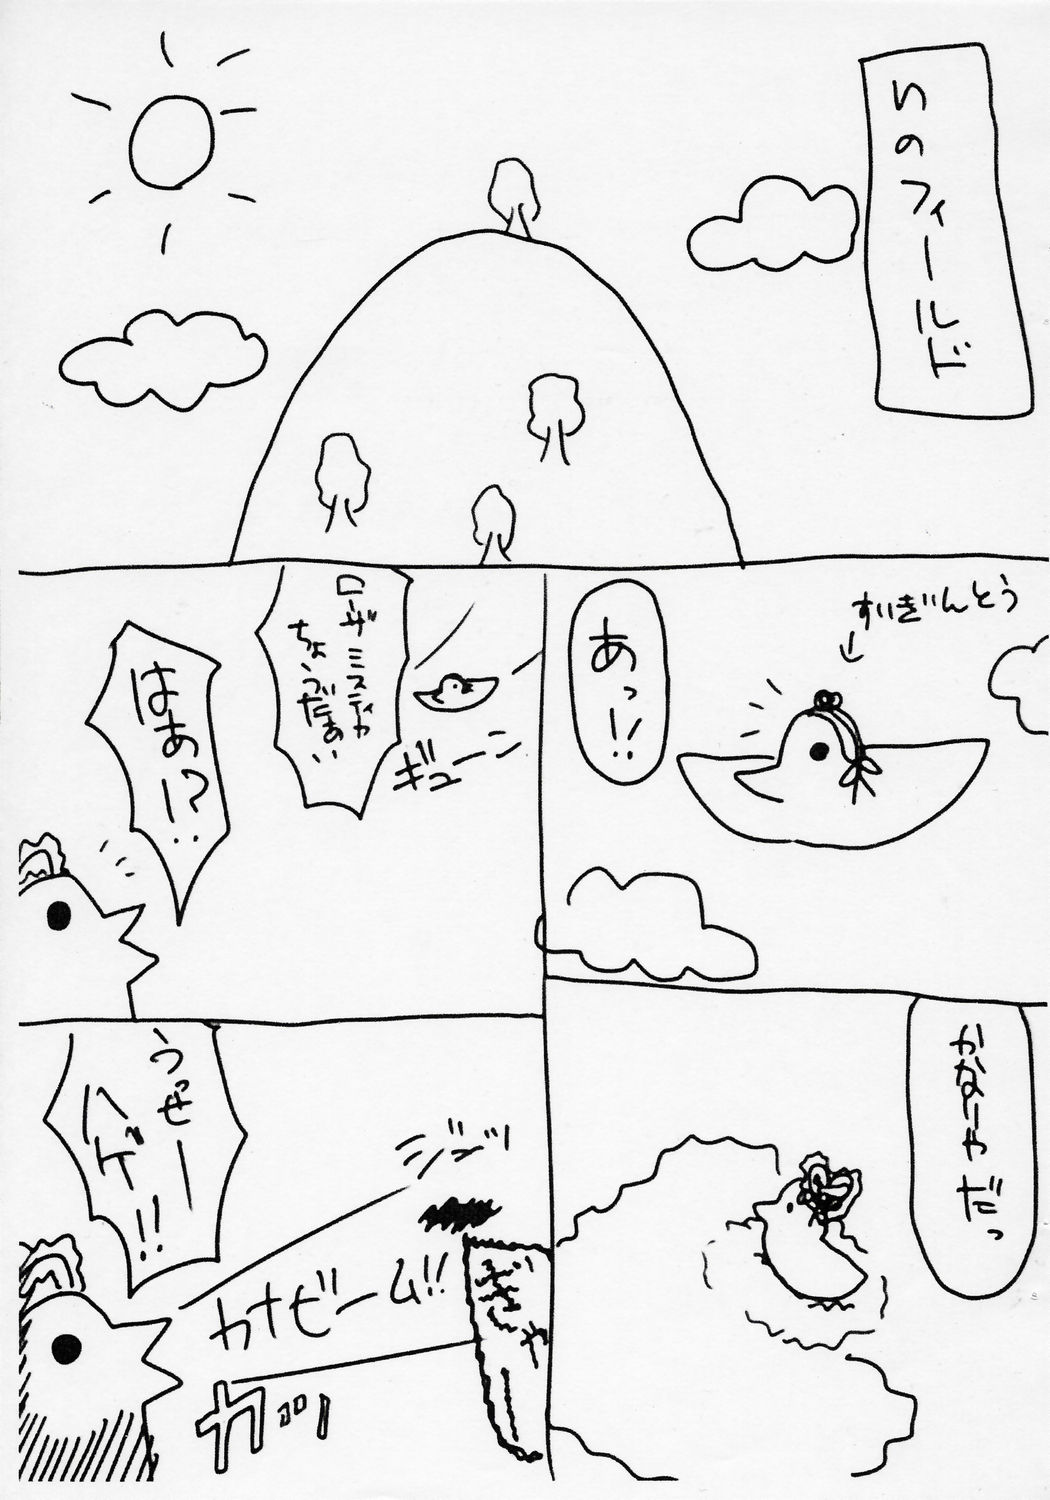 いのフィールド
すいぎんとう
↓
あっ!!
かなりやーだっ
ギューン
ローザミスティカ
ちょうだぁい
はぁ!?
ジジッ
うっぜー
ハゲ!!
カナビーム!!
ぎゃ
カッ